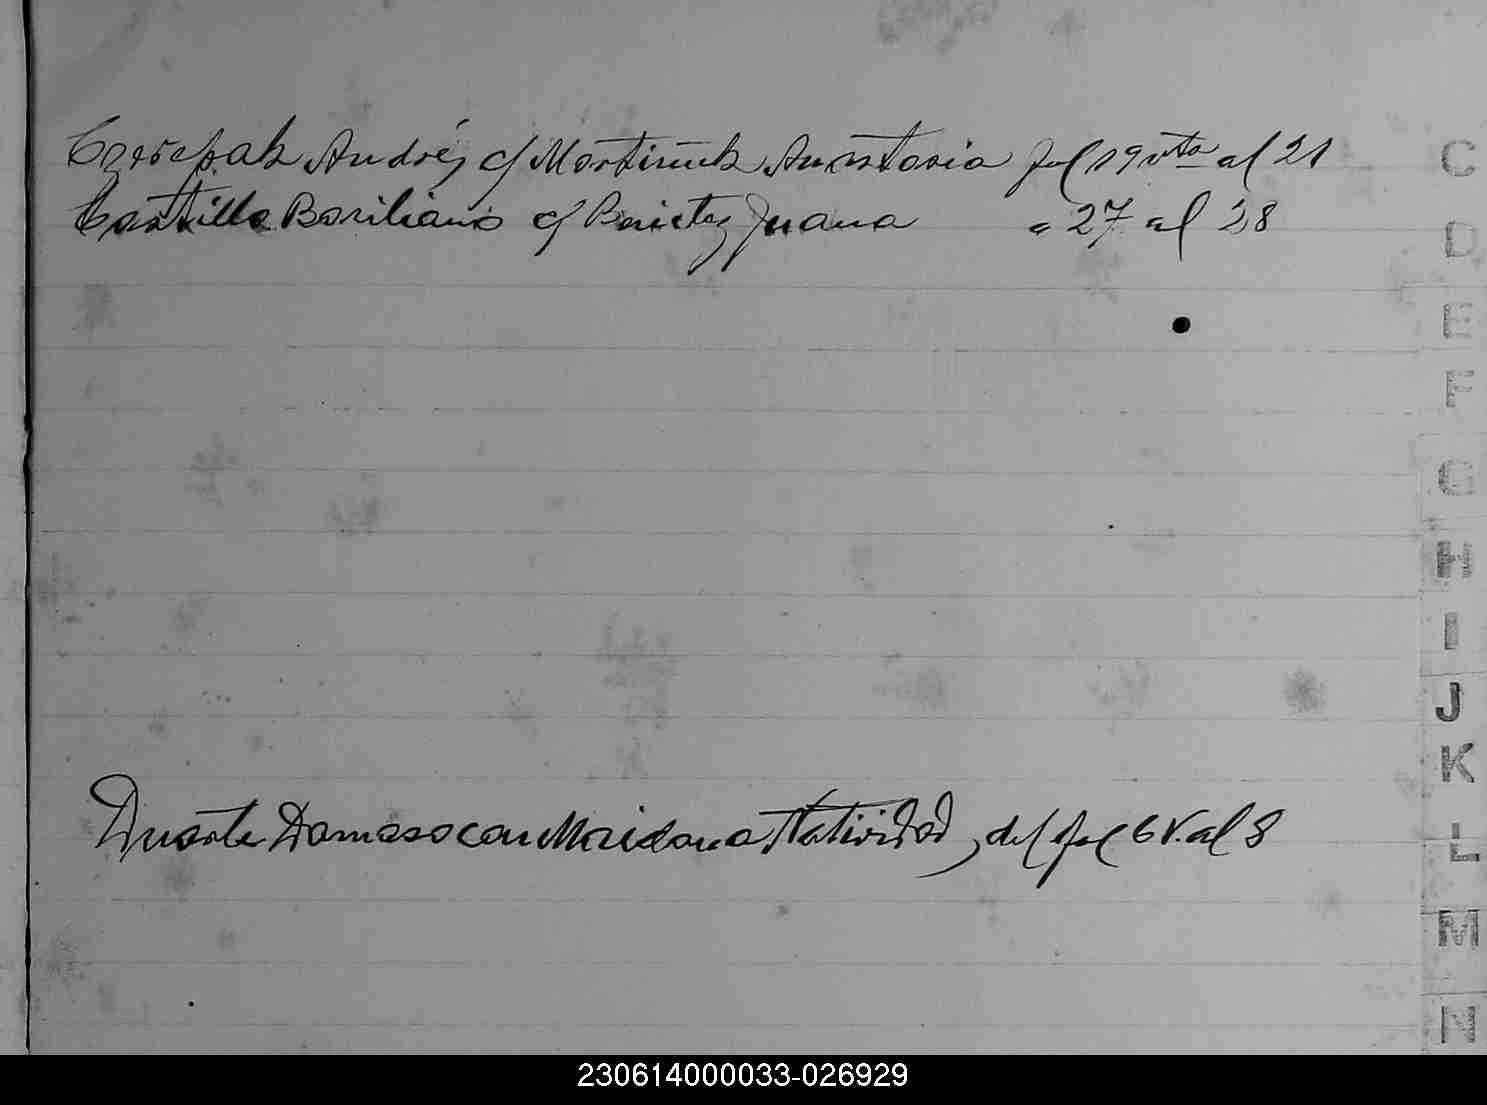 Czerepak Andrés c/ Martiniuk Anastasia fol 19 vto al 21
Castillo Basiliano c/ Benitez Juana " 27 al 28
Duarte Damaso con Maidana Natividad, del fol 6 V. al 8
C
D
E
F
G
H
I
J
K
L
M
N
230614000033-026929